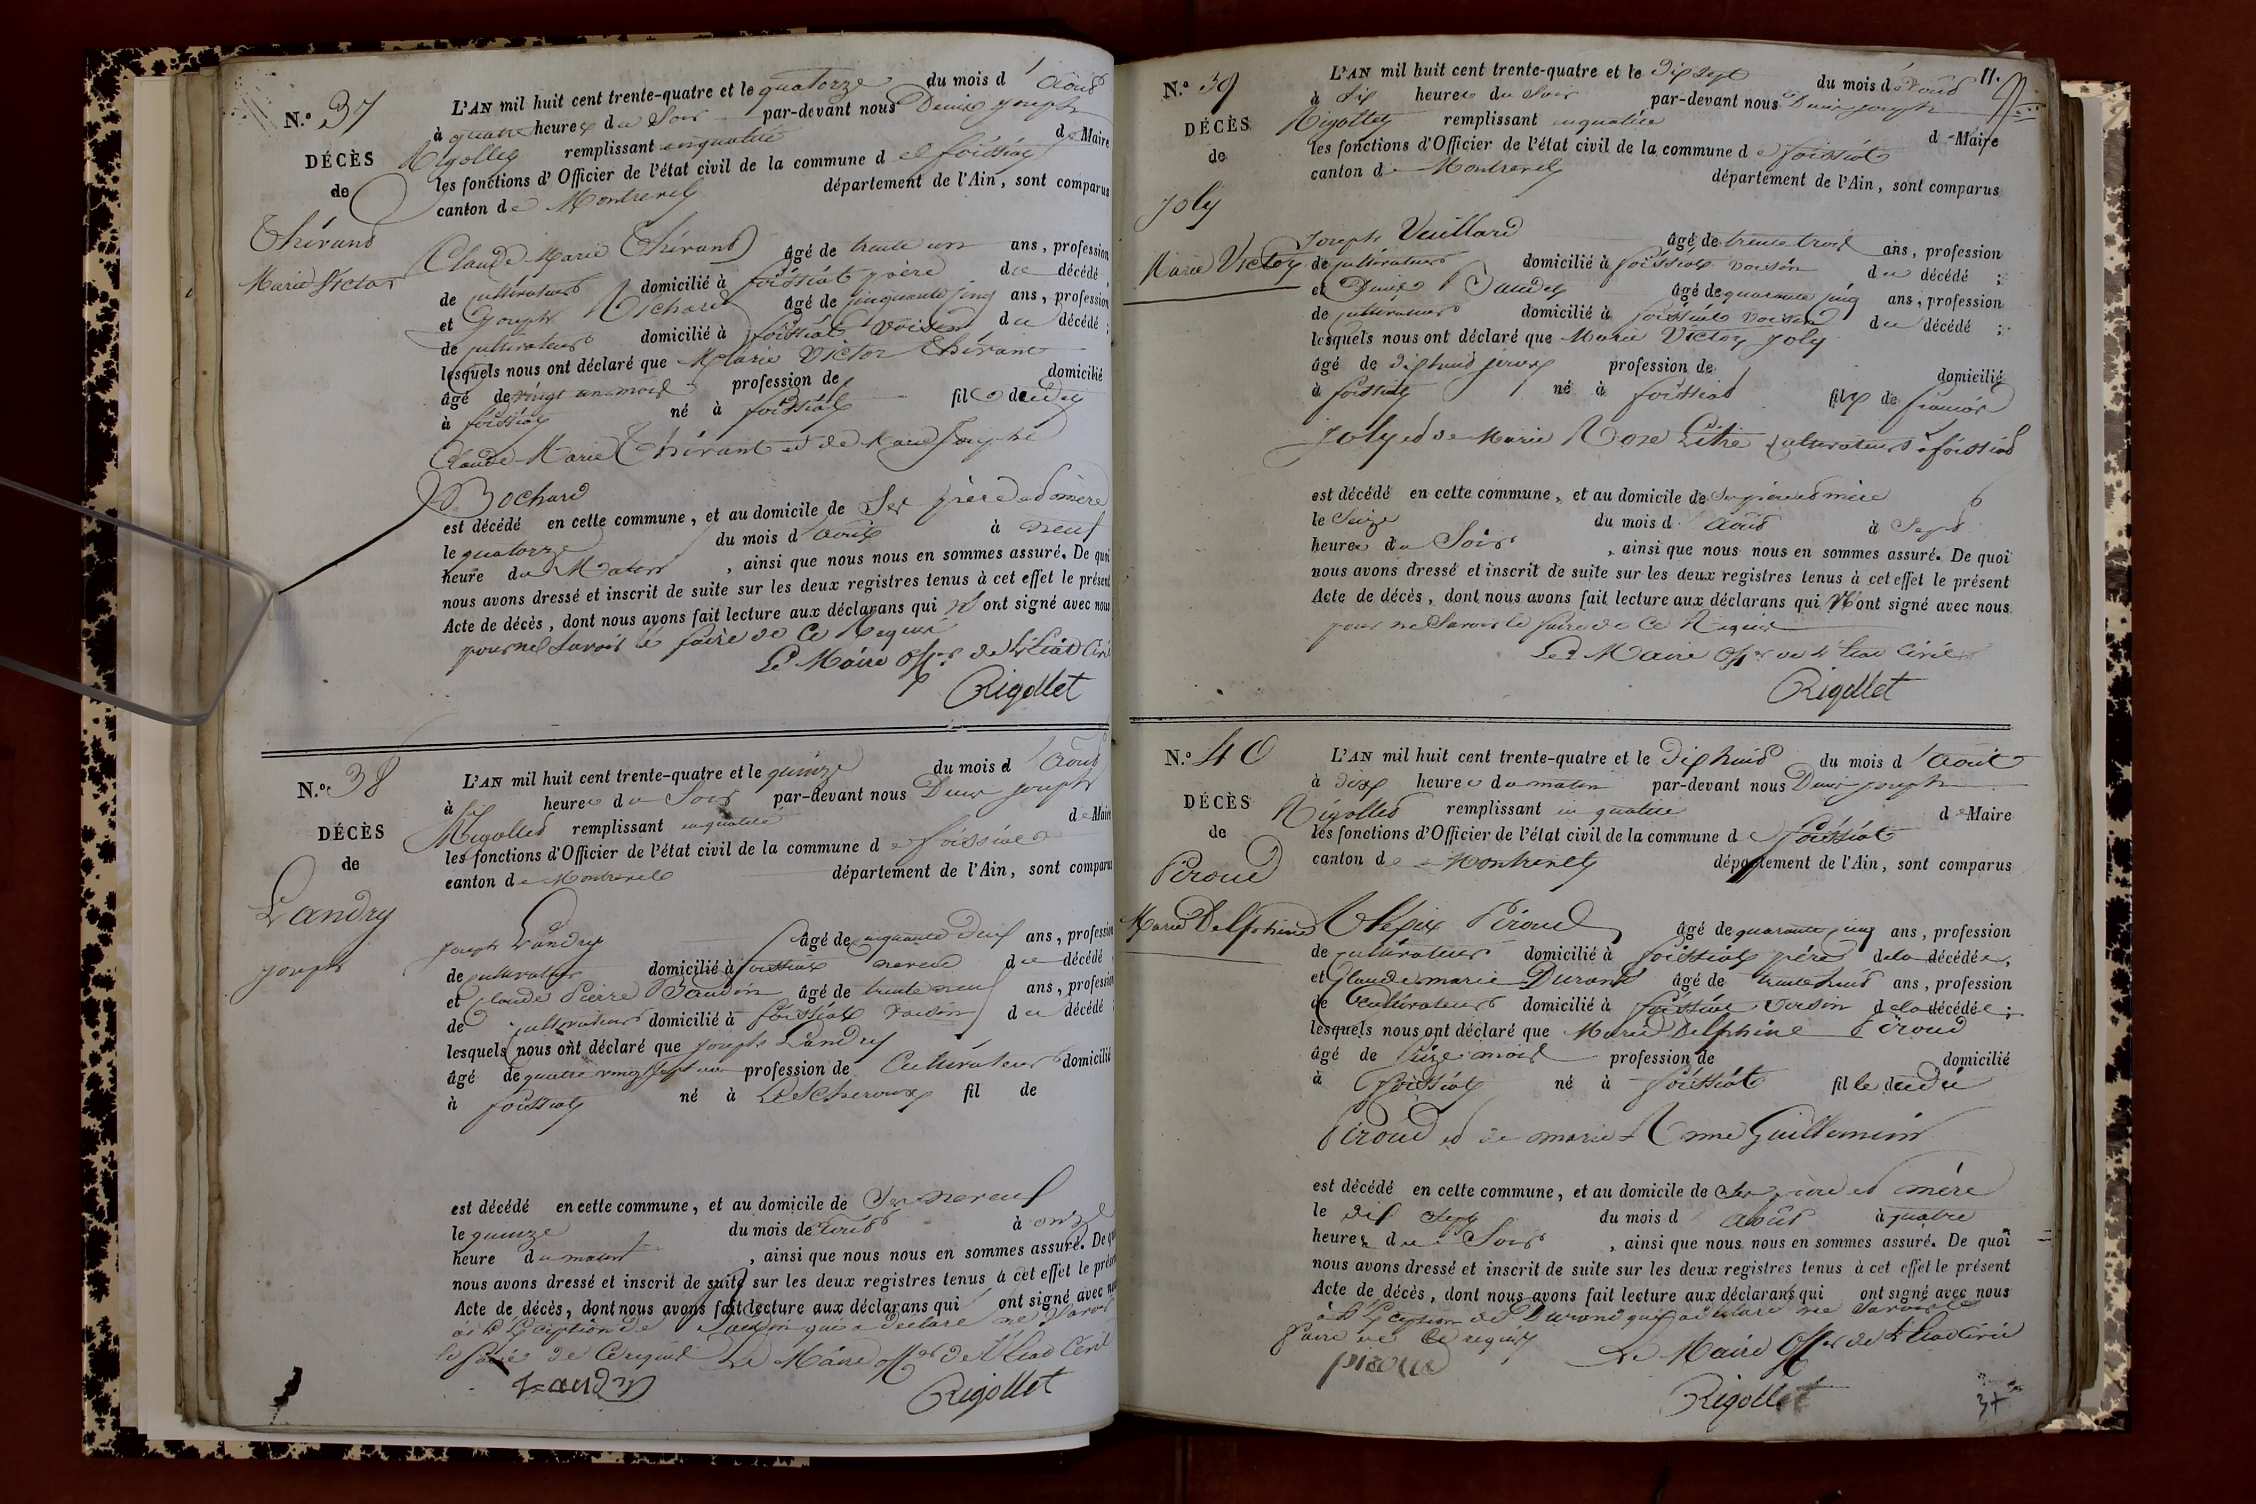 N.º 37
DÉCÈS
de
Thévand
Marie Victor
L'AN mil huit cent trente-quatre et le quatorze du mois d'Août
à quatre heures du Soir par-devant nous Denis Joseph
Rigollet remplissant en qualité de Maire
les fonctions d'Officier de l'état civil de la commune de foissiat
canton de Montrevel département de l'Ain, sont comparus
Claude Marie Thévand âgé de trente un ans, profession
de cultivateur domicilié à foissiat père du décédé,
et Joseph Bichard âgé de cinquante cinq ans, profession
de cultivateur domicilié à foissiat voisin du décédé;
lesquels nous ont déclaré que Marie Victor Thévant
âgé de vingt un mois profession de domicilié
à foissiat né à foissiat fils dudit
Claude Marie Thévant et de Marie Josephe
Bochard
est décédé en cette commune, et au domicile de Ses père et mère
le quatorze du mois d'août à neuf
heure du Matin, ainsi que nous nous en sommes assuré. De quoi
nous avons dressé et inscrit de suite sur les deux registres tenus à cet effet le présent
Acte de décès, dont nous avons fait lecture aux déclarans qui n'ont signé avec nous
pour ne savoir le faire de Ce Requis
Le Maire Offer de L'Etat Civil
Rigollet
N.º 38
DÉCÈS
de
Landry
Joseph
L'AN mil huit cent trente-quatre et le quinze du mois d'Août
à six heures du Soir par-devant nous Denis Joseph
Rigollet remplissant en qualité de Maire
les fonctions d'Officier de l'état civil de la commune de foissiat
canton de Montrevel département de l'Ain, sont comparus
Joseph Landry âgé de cinquante deux ans, profession
de cultivateur domicilié à foissiat neveu du décédé,
et Claude Pierre Baudin âgé de trente neuf ans, profession
de cultivateur domicilié à foissiat voisin du décédé
lesquels nous ont déclaré que Joseph Landry
âgé de quatre vingt sept ans profession de Cultivateur domicilié
à foissiat né à Lescheroux fil de
est décédé en cette commune, et au domicile de Son neveu
le quinze du mois de août à onze
heure du matin, ainsi que nous nous en sommes assuré. De quoi
nous avons dressé et inscrit de suite sur les deux registres tenus à cet effet le présent
Acte de décès, dont nous avons fait lecture aux déclarans qui ont signé avec nous
à L'Exception de Baudin qui a déclaré ne Savoir
le faire de Ce requis Le Maire offer de L'Etat Civil
Landry
Rigollet
11.
N.º 39
DÉCÈS
de
Joly
Marie Victor
L'AN mil huit cent trente-quatre et le Dix Sept du mois d'Août
à Six heures du Soir par-devant nous Denis Joseph
Rigollet remplissant en qualité de Maire
les fonctions d'Officier de l'état civil de la commune de foissiat
canton de Montrevel département de l'Ain, sont comparus
Joseph Vuillard âgé de trente trois ans, profession
de cultivateur domicilié à foissiat voisin du décédé;
et Denis âgé de quarante cinq ans, profession
de cultivateur domicilié à foissiat voisin du décédé;
lesquels nous ont déclaré que Marie Victor Joly
âgé de dix huit jours profession de domicilié
à foissiat né à foissiat fils de francois
Joly et de Marie Rose Litre Cultivateurs à foissiat
est décédé en cette commune, et au domicile de Ses père et mère
le Seize du mois d'Août à Sept
heures du Soir, ainsi que nous nous en sommes assuré. De quoi
nous avons dressé et inscrit de suite sur les deux registres tenus à cet effet le présent
Acte de décès, dont nous avons fait lecture aux déclarans qui N'ont signé avec nous
pour ne Savoir le faire de Ce Requis
Le Maire Offer de L'Etat Civil
Rigollet
N.º 40
DÉCÈS
de
Piroud
Marie Delphine
L'AN mil huit cent trente-quatre et le Dix huit du mois d'Août
à dix heures du matin par-devant nous Denis Joseph
Rigollet remplissant en qualité de Maire
les fonctions d'Officier de l'état civil de la commune de foissiat
canton de Montrevel département de l'Ain, sont comparus
Alexix Piroud âgé de quarante cinq ans, profession
de cultivateur domicilié à foissiat père de la décédée,
et Claude marie Durand âgé de trente huit ans, profession
de Cultivateur domicilié à foissiat voisin de la décédée;
lesquels nous ont déclaré que Marie Delphine Piroud
âgé de Seize mois profession de domicilié
à foissiat né à foissiat fille dudit
Piroud et de marie Anne Guillemin
est décédé en cette commune, et au domicile de Ses père et mère
le dix Sept du mois d'août à quatre
heures du Soir, ainsi que nous nous en sommes assuré. De quoi
nous avons dressé et inscrit de suite sur les deux registres tenus à cet effet le présent
Acte de décès, dont nous avons fait lecture aux déclarans qui ont signé avec nous
à L'Exception de Durand qui a déclaré ne Savoir le
faire de Ce requis
Le Maire Offer de L'Etat Civil
piroud
Rigollet